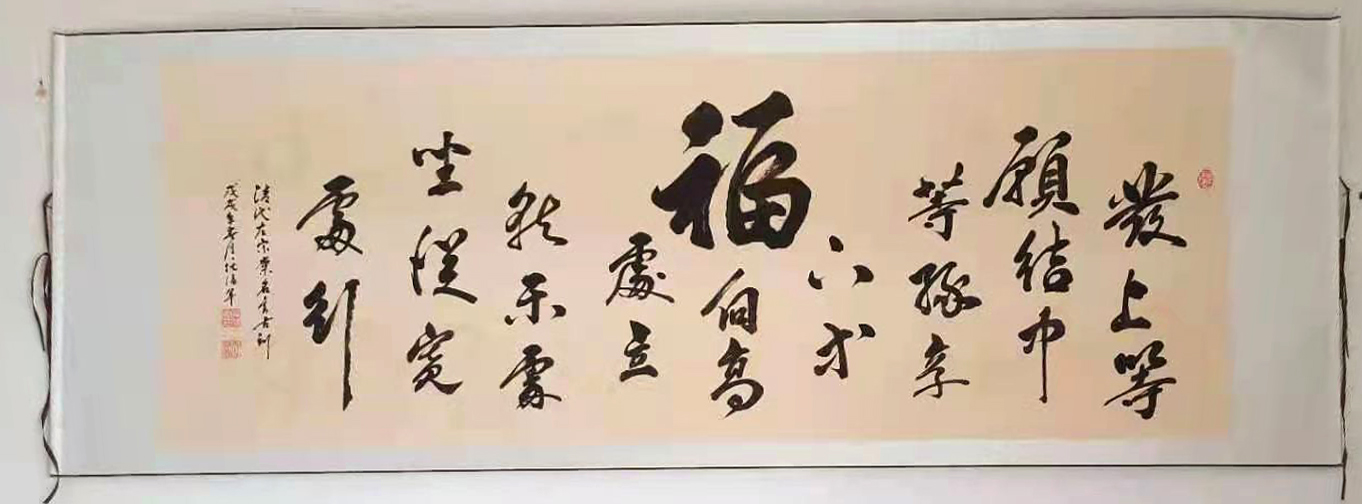 發上等
願結中
等緣享
下等
福向高
處立
就平處
坐從寬
處行
清代左宗棠
戊戌年春月